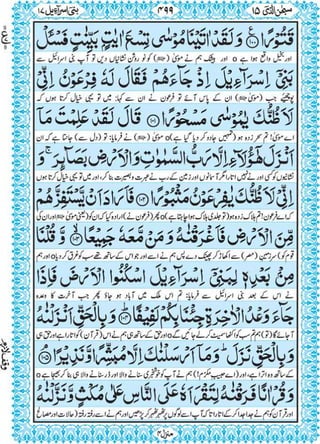 سبحٰن الذی ۱۵ ۲۹۹ بنی اسرآءیل ۱۷
قَتُوْرًا ﴿۱۰۰﴾ وَ لَقَدْ اٰتَیْنَا مُوْسٰی تِسْعَ اٰیٰتٍۭ بَیِّنٰتٍ فَسْـَٔلْ
اور بخیل واقع ہوا ہے اور بیشک ہم نے موسٰی کو نو روشن نشانیاں دیں تو آپ بنی اسرائیل سے
بَنِیْۤ اِسْرَآءِیْلَ اِذْ جَآءَهُمْ فَقَالَ لَهٗ فِرْعَوْنُ اِنِّیْ
پوچھئے جب (موسٰی) ان کے پاس آئے تو فرعون نے ان سے کہا: میں تو یہی خیال کرتا ہوں کہ
لَاَظُنُّكَ یٰمُوْسٰی مَسْحُوْرًا ﴿۱۰۱﴾ قَالَ لَقَدْ عَلِمْتَ مَاۤ
اے موسٰی! تم سحر زدہ ہو (تمہیں جادو کر دیا گیا ہے) موسٰی نے فرمایا: تو (دل سے) جانتا ہے کہ ان
اَنْزَلَ هٰۤؤُلَآءِ اِلَّا رَبُّ السَّمٰوٰتِ وَ الْاَرْضِ بَصَآئِرَ ۚ وَ
نشانیوں کو کسی اور نے نہیں اتارا مگر آسمانوں اور زمین کے رب نے عبرت و بصیرت بنا کر، اور میں تو یہی خیال کرتا ہوں
اِنِّیْ لَاَظُنُّكَ یٰفِرْعَوْنُ مَثْبُوْرًا ﴿۱۰۲﴾ فَاَرَادَ اَنْ یَّسْتَفِزَّهُمْ
کہ اے فرعون! تم ہلاک زدہ ہو پھر (فرعون نے) ارادہ کیا کہ ان کو
مِّنَ الْاَرْضِ فَاَغْرَقْنٰهُ وَ مَنْ مَّعَهٗ جَمِیْعًا ﴿۱۰۳﴾ وَّ قُلْنَا
سرزمین سے اکھاڑ کر پھینک دے پس ہم نے اسے اور جو اس کے ساتھ تھے سب کو غرق کر دیا اور ہم
مِنْۢ بَعْدِهٖ لِبَنِیْۤ اِسْرَآءِیْلَ اسْكُنُوا الْاَرْضَ فَاِذَا
نے اس کے بعد بنی اسرائیل سے فرمایا: تم اس ملک میں آباد ہو جاؤ پھر جب آخرت کا وعدہ
جَآءَ وَعْدُ الْاٰخِرَةِ جِئْنَا بِكُمْ لَفِیْفًا ﴿۱۰۴﴾ وَ بِالْحَقِّ اَنْزَلْنٰهُ
آ جائے گا (تو) ہم تم سب کو اکٹھا سمیٹ کر لے جائیں گے اور حق کے ساتھ ہی ہم نے اس (قرآن) کو اتارا ہے اور حق ہی
وَ بِالْحَقِّ نَزَلَ ؕ وَ مَاۤ اَرْسَلْنٰكَ اِلَّا مُبَشِّرًا وَّ نَذِیْرًا ﴿۱۰۵﴾
کے ساتھ وہ اترا ہے، اور ہم نے آپ کو خوشخبری سنانے والا اور ڈر سنانے والا ہی بنا کر بھیجا ہے
وَ قُرْاٰنًا فَرَقْنٰهُ لِتَقْرَاَهٗ عَلَی النَّاسِ عَلٰی مُكْثٍ وَّ نَزَّلْنٰهُ
اور قرآن کو ہم نے جدا جدا کر کے اتارا تاکہ آپ اسے لوگوں پر ٹھہر ٹھہر کر پڑھیں اور ہم نے اسے رفتہ رفتہ (حالات اور مصالح
منزل ۴